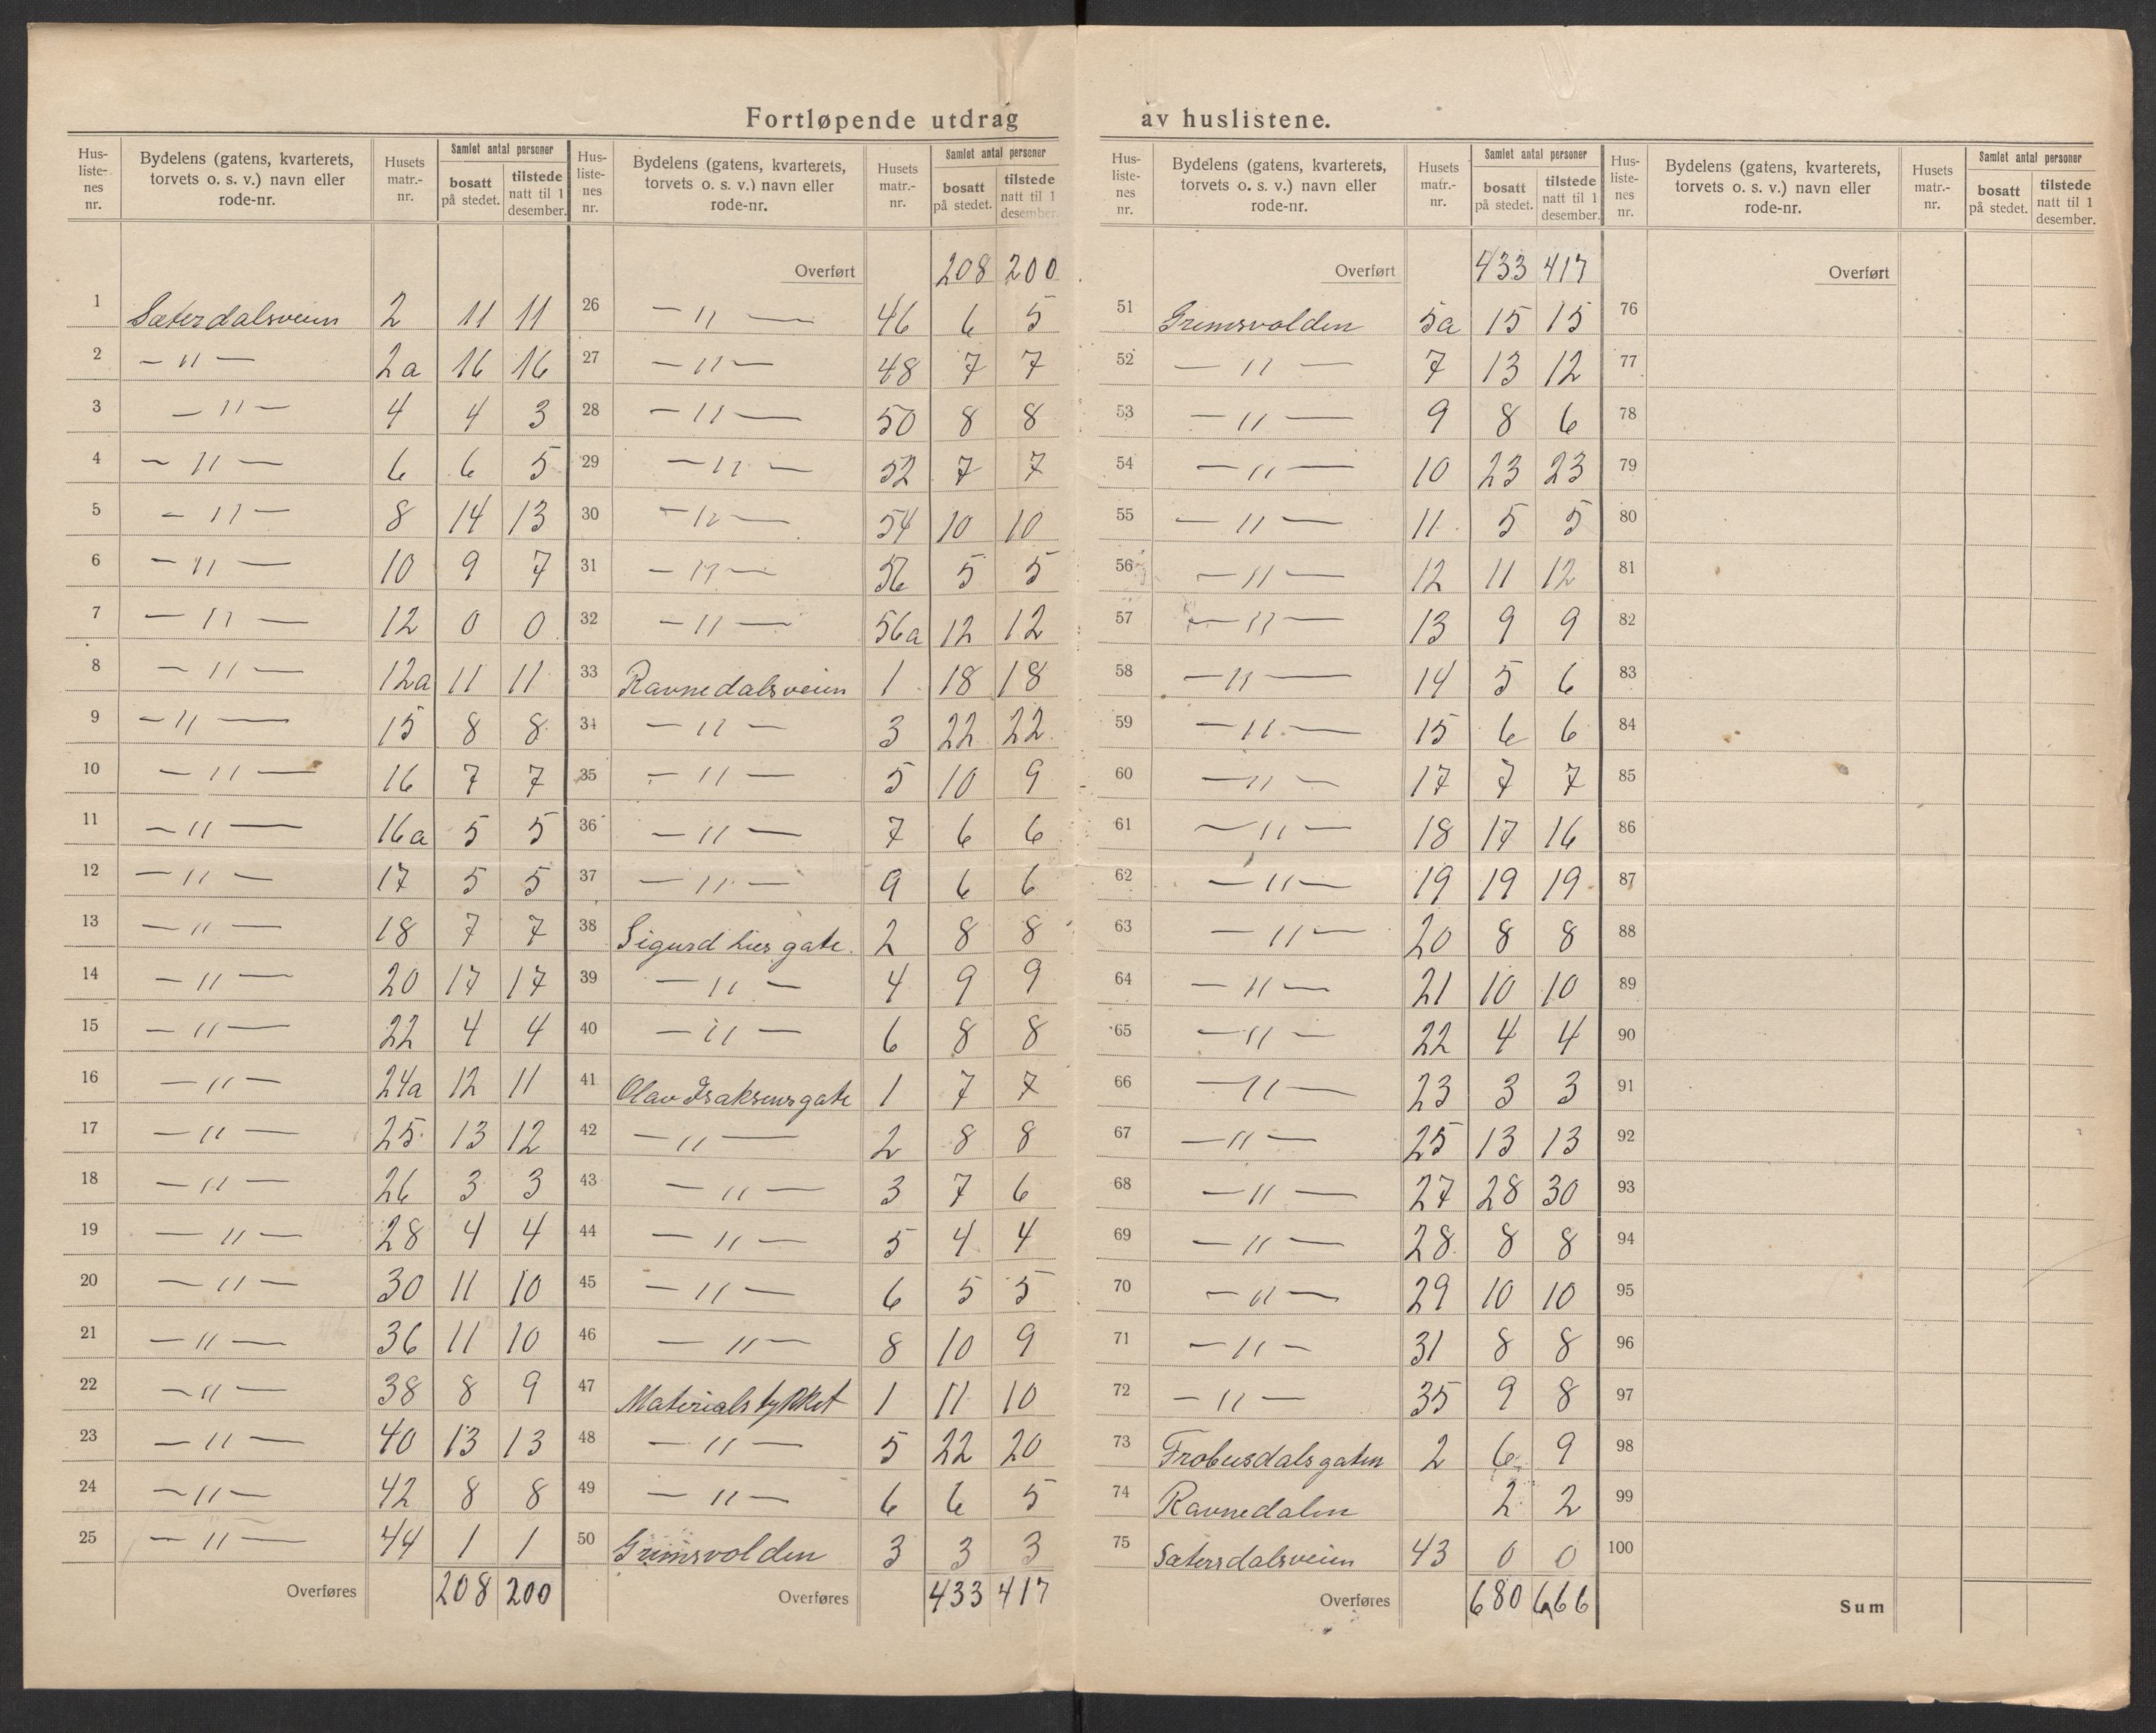 Fortløpende utdrag av huslistene.
Hus-liste-nes nr. | Bydelens (gatens, kvarterets, torvets o. s. v.) navn eller rode-nr. | Husets matr.-nr. | Samlet antal personer bosatt på stedet. | tilstede natt til 1 desember.
1 Sæterdalsveien 2 11 11
2 — " — 2a 16 16
3 — " — 4 4 3
4 — " — 6 6 5
5 — " — 8 14 13
6 — " — 10 9 7
7 — " — 12 0 0
8 — " — 12a 11 11
9 — " — 15 8 8
10 — " — 16 7 7
11 — " — 16a 5 5
12 — " — 17 5 5
13 — " — 18 7 7
14 — " — 20 17 17
15 — " — 22 4 4
16 — " — 24a 12 11
17 — " — 25 13 12
18 — " — 26 3 3
19 — " — 28 4 4
20 — " — 30 11 10
21 — " — 36 11 10
22 — " — 38 8 9
23 — " — 40 13 13
24 — " — 42 8 8
25 — " — 44 1 1
Overføres 208 200
Hus-liste-nes nr. | Bydelens (gatens, kvarterets, torvets o. s. v.) navn eller rode-nr. | Husets matr.-nr. | Samlet antal personer bosatt på stedet. | tilstede natt til 1 desember.
Overført 208 200
26 — " — 46 6 5
27 — " — 48 7 7
28 — " — 50 8 8
29 — " — 52 7 7
30 — " — 54 10 10
31 — " — 56 5 5
32 — " — 56a 12 12
33 Ravnedalsveien 1 18 18
34 — " — 3 22 22
35 — " — 5 10 9
36 — " — 7 6 6
37 — " — 9 6 6
38 Sigurd Lies gate. 2 8 8
39 — " — 4 9 9
40 — " — 6 8 8
41 Olav Isaksensgate 1 7 7
42 — " — 2 8 8
43 — " — 3 7 6
44 — " — 5 4 4
45 — " — 6 5 5
46 — " — 8 10 9
47 Materialstykket 1 11 10
48 — " — 5 22 20
49 — " — 6 6 5
50 Grimsvolden 3 3 3
Overføres 433 417
Hus-liste-nes nr. | Bydelens (gatens, kvarterets, torvets o. s. v.) navn eller rode-nr. | Husets matr.-nr. | Samlet antal personer bosatt på stedet. | tilstede natt til 1 desember.
Overført 433 417
51 Grimsvolden 5a 15 15
52 — " — 7 13 12
53 — " — 9 8 6
54 — " — 10 23 23
55 — " — 11 5 5
56 — " — 12 11 12
57 — " — 13 9 9
58 — " — 14 5 6
59 — " — 15 6 6
60 — " — 17 7 7
61 — " — 18 17 16
62 — " — 19 19 19
63 — " — 20 8 8
64 — " — 21 10 10
65 — " — 22 4 4
66 — " — 23 3 3
67 — " — 25 13 13
68 — " — 27 28 30
69 — " — 28 8 8
70 — " — 29 10 10
71 — " — 31 8 8
72 — " — 35 9 8
73 Frobusdalsgaten 2 6 9
74 Ravnedalen 2 2
75 Sætersdalsveien 43 0 0
Overføres 680 666
Hus-liste-nes nr. | Bydelens (gatens, kvarterets, torvets o. s. v.) navn eller rode-nr. | Husets matr.-nr. | Samlet antal personer bosatt på stedet. | tilstede natt til 1 desember.
Overført
76
77
78
79
80
81
82
83
84
85
86
87
88
89
90
91
92
93
94
95
96
97
98
99
100
Sum